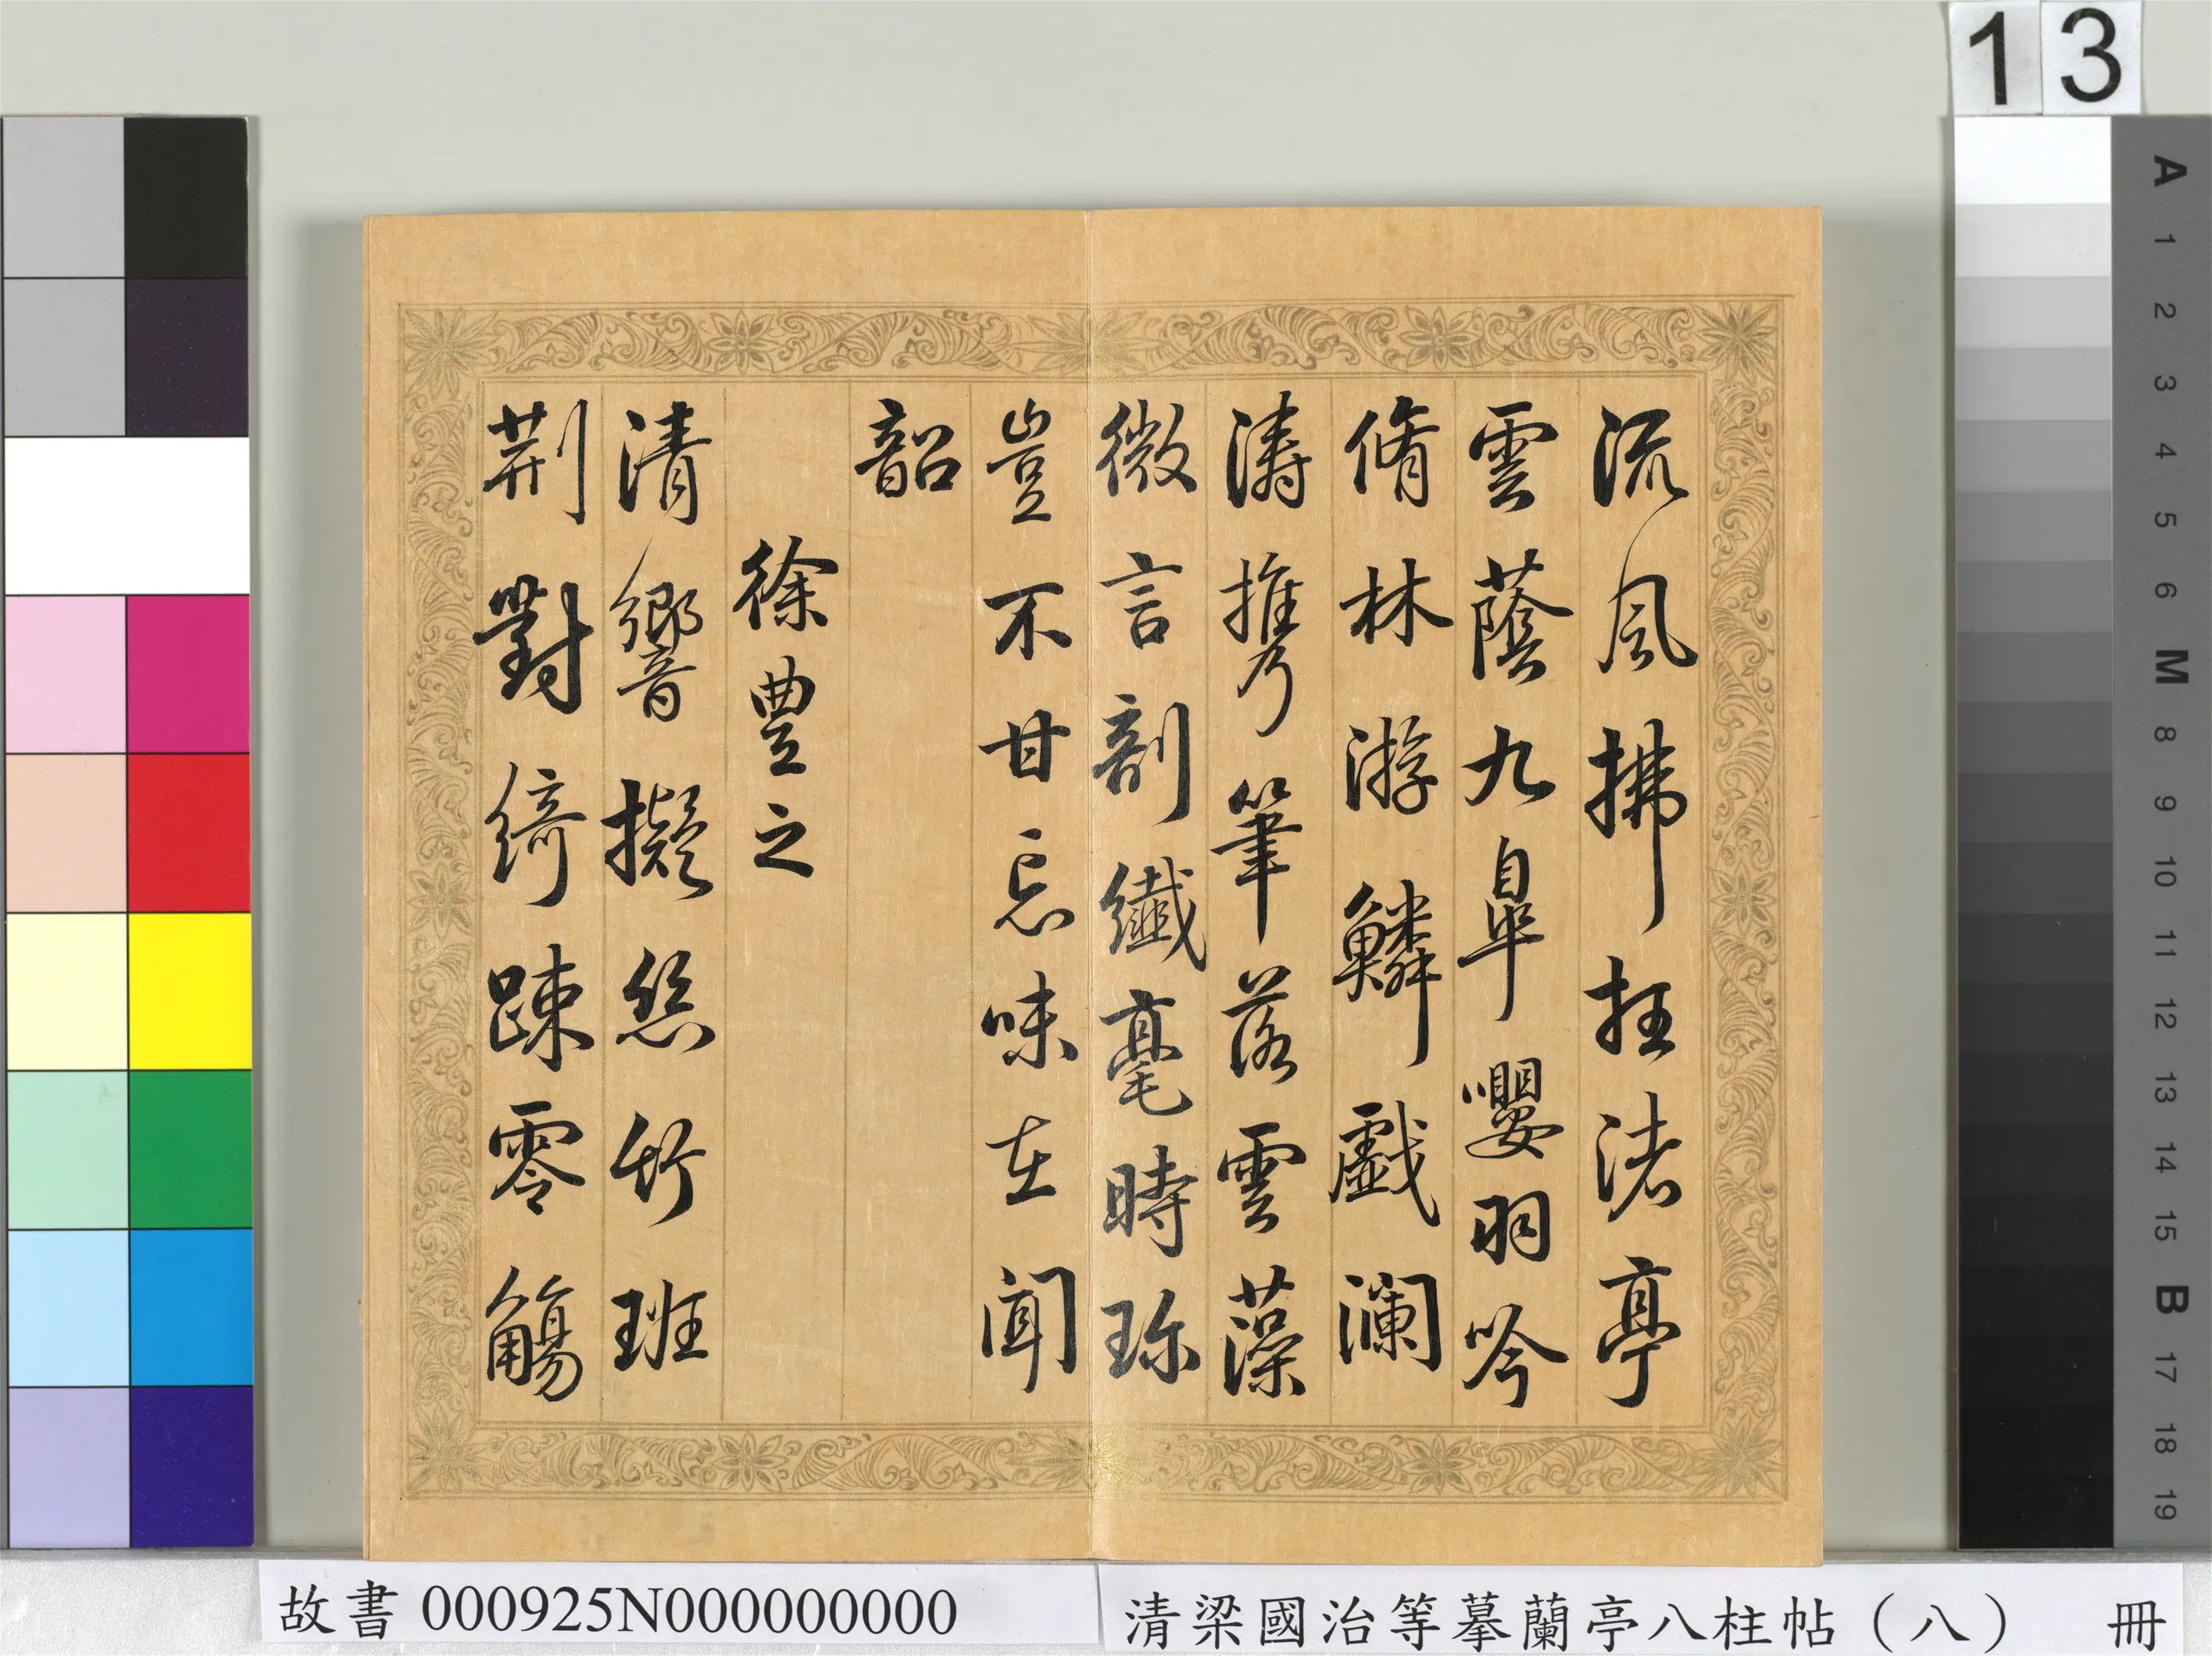 13
流風拂抂渚亭
雲蔭九皐嚶羽吟
脩林游鱗戲瀾
濤擕筆落雲藻
微言剖纖毫時珎
豈不甘忘味在聞
韶
徐豊之
清響擬絲竹班
荆對綺踈零觴
A
1
2
3
4
5
6
M
8
9
10
11
12
13
14
15
B
17
18
19
故書 000925N000000000
清梁國治等摹蘭亭八柱帖（八） 冊